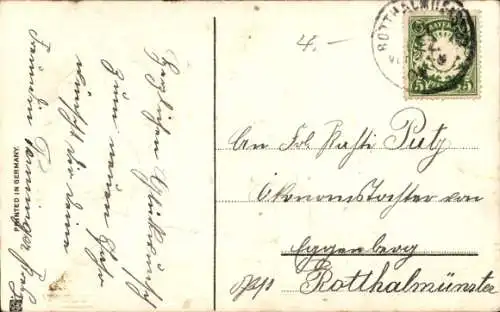 Herzlichen Glückwunsch
zum neuen Jahr
wünscht dir deine
Freundin
PRINTED IN GERMANY.
4.-
ROTTHALMÜNSTER
BAYERN
5 5
An Frl. Kathi Putz
Ökonomstochter von
Eggenberg
Post Rotthalmünster